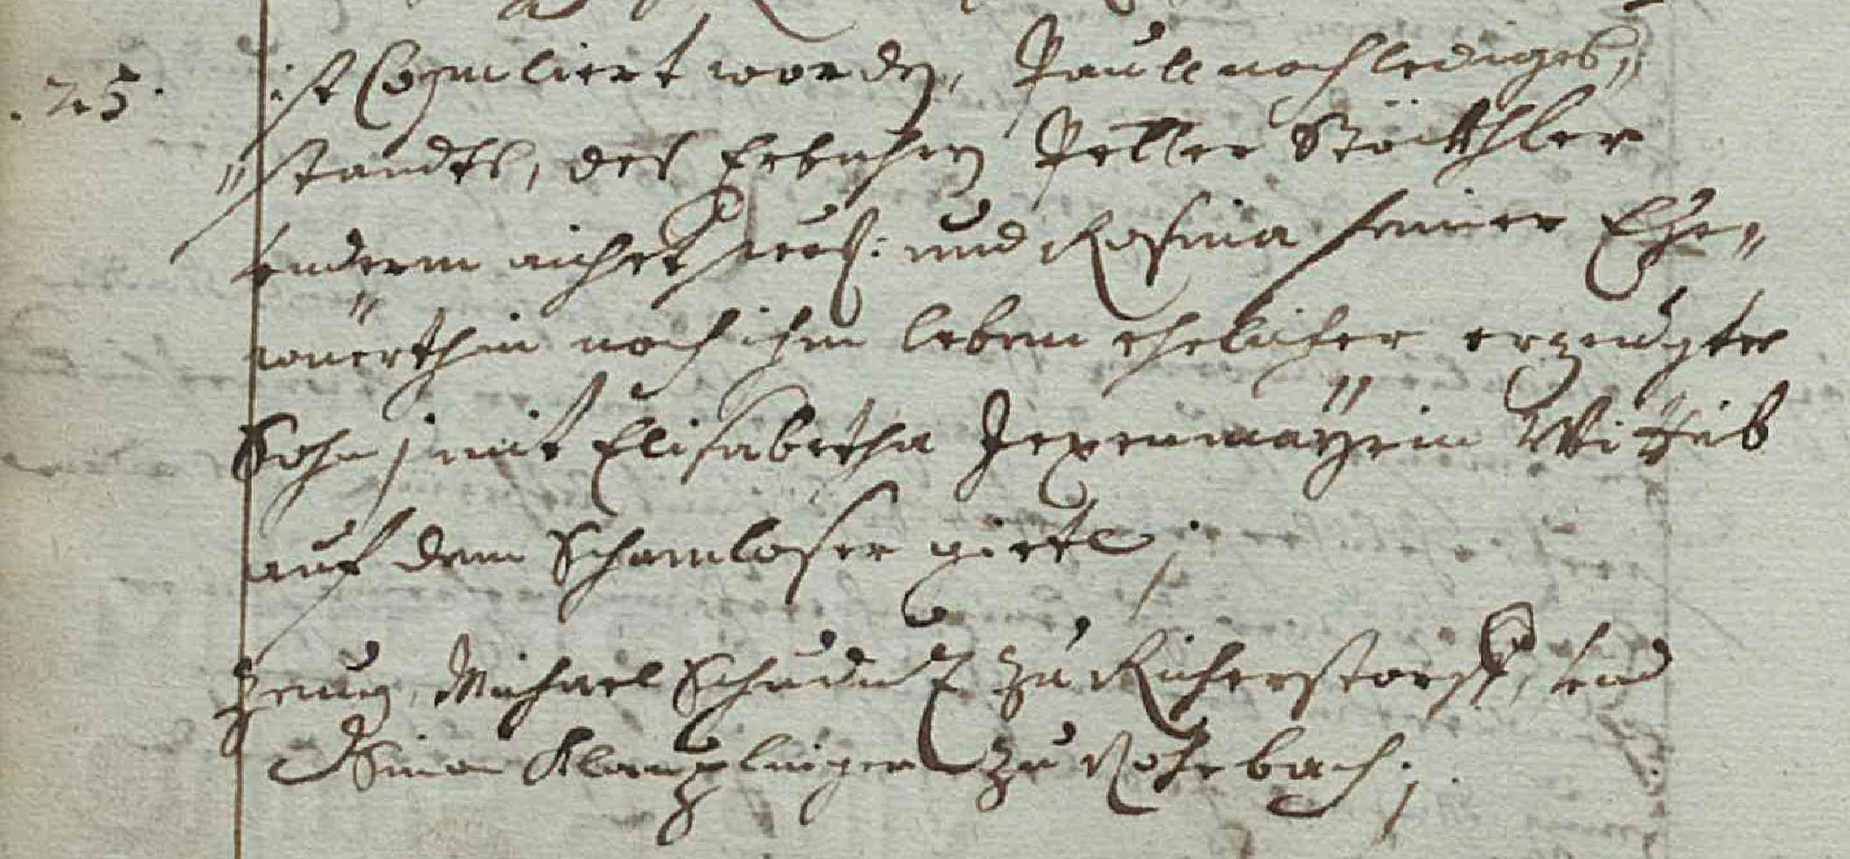 .25.
ist Copuliert worden, Paull noch lediges,,
,,standts, des Erbahrn Petter Stöckhler
und Rosina seiner Ehe,,
würthin noch ihm leben ehelicher erzeugter
Sohn, mit Elisabetha Jexenmayrin Wittib
auf dem Schamloser giettl;
Zeug, Michael Schudu zu Richerstorff, und
Simon Klamplinger zu Rohrbach;